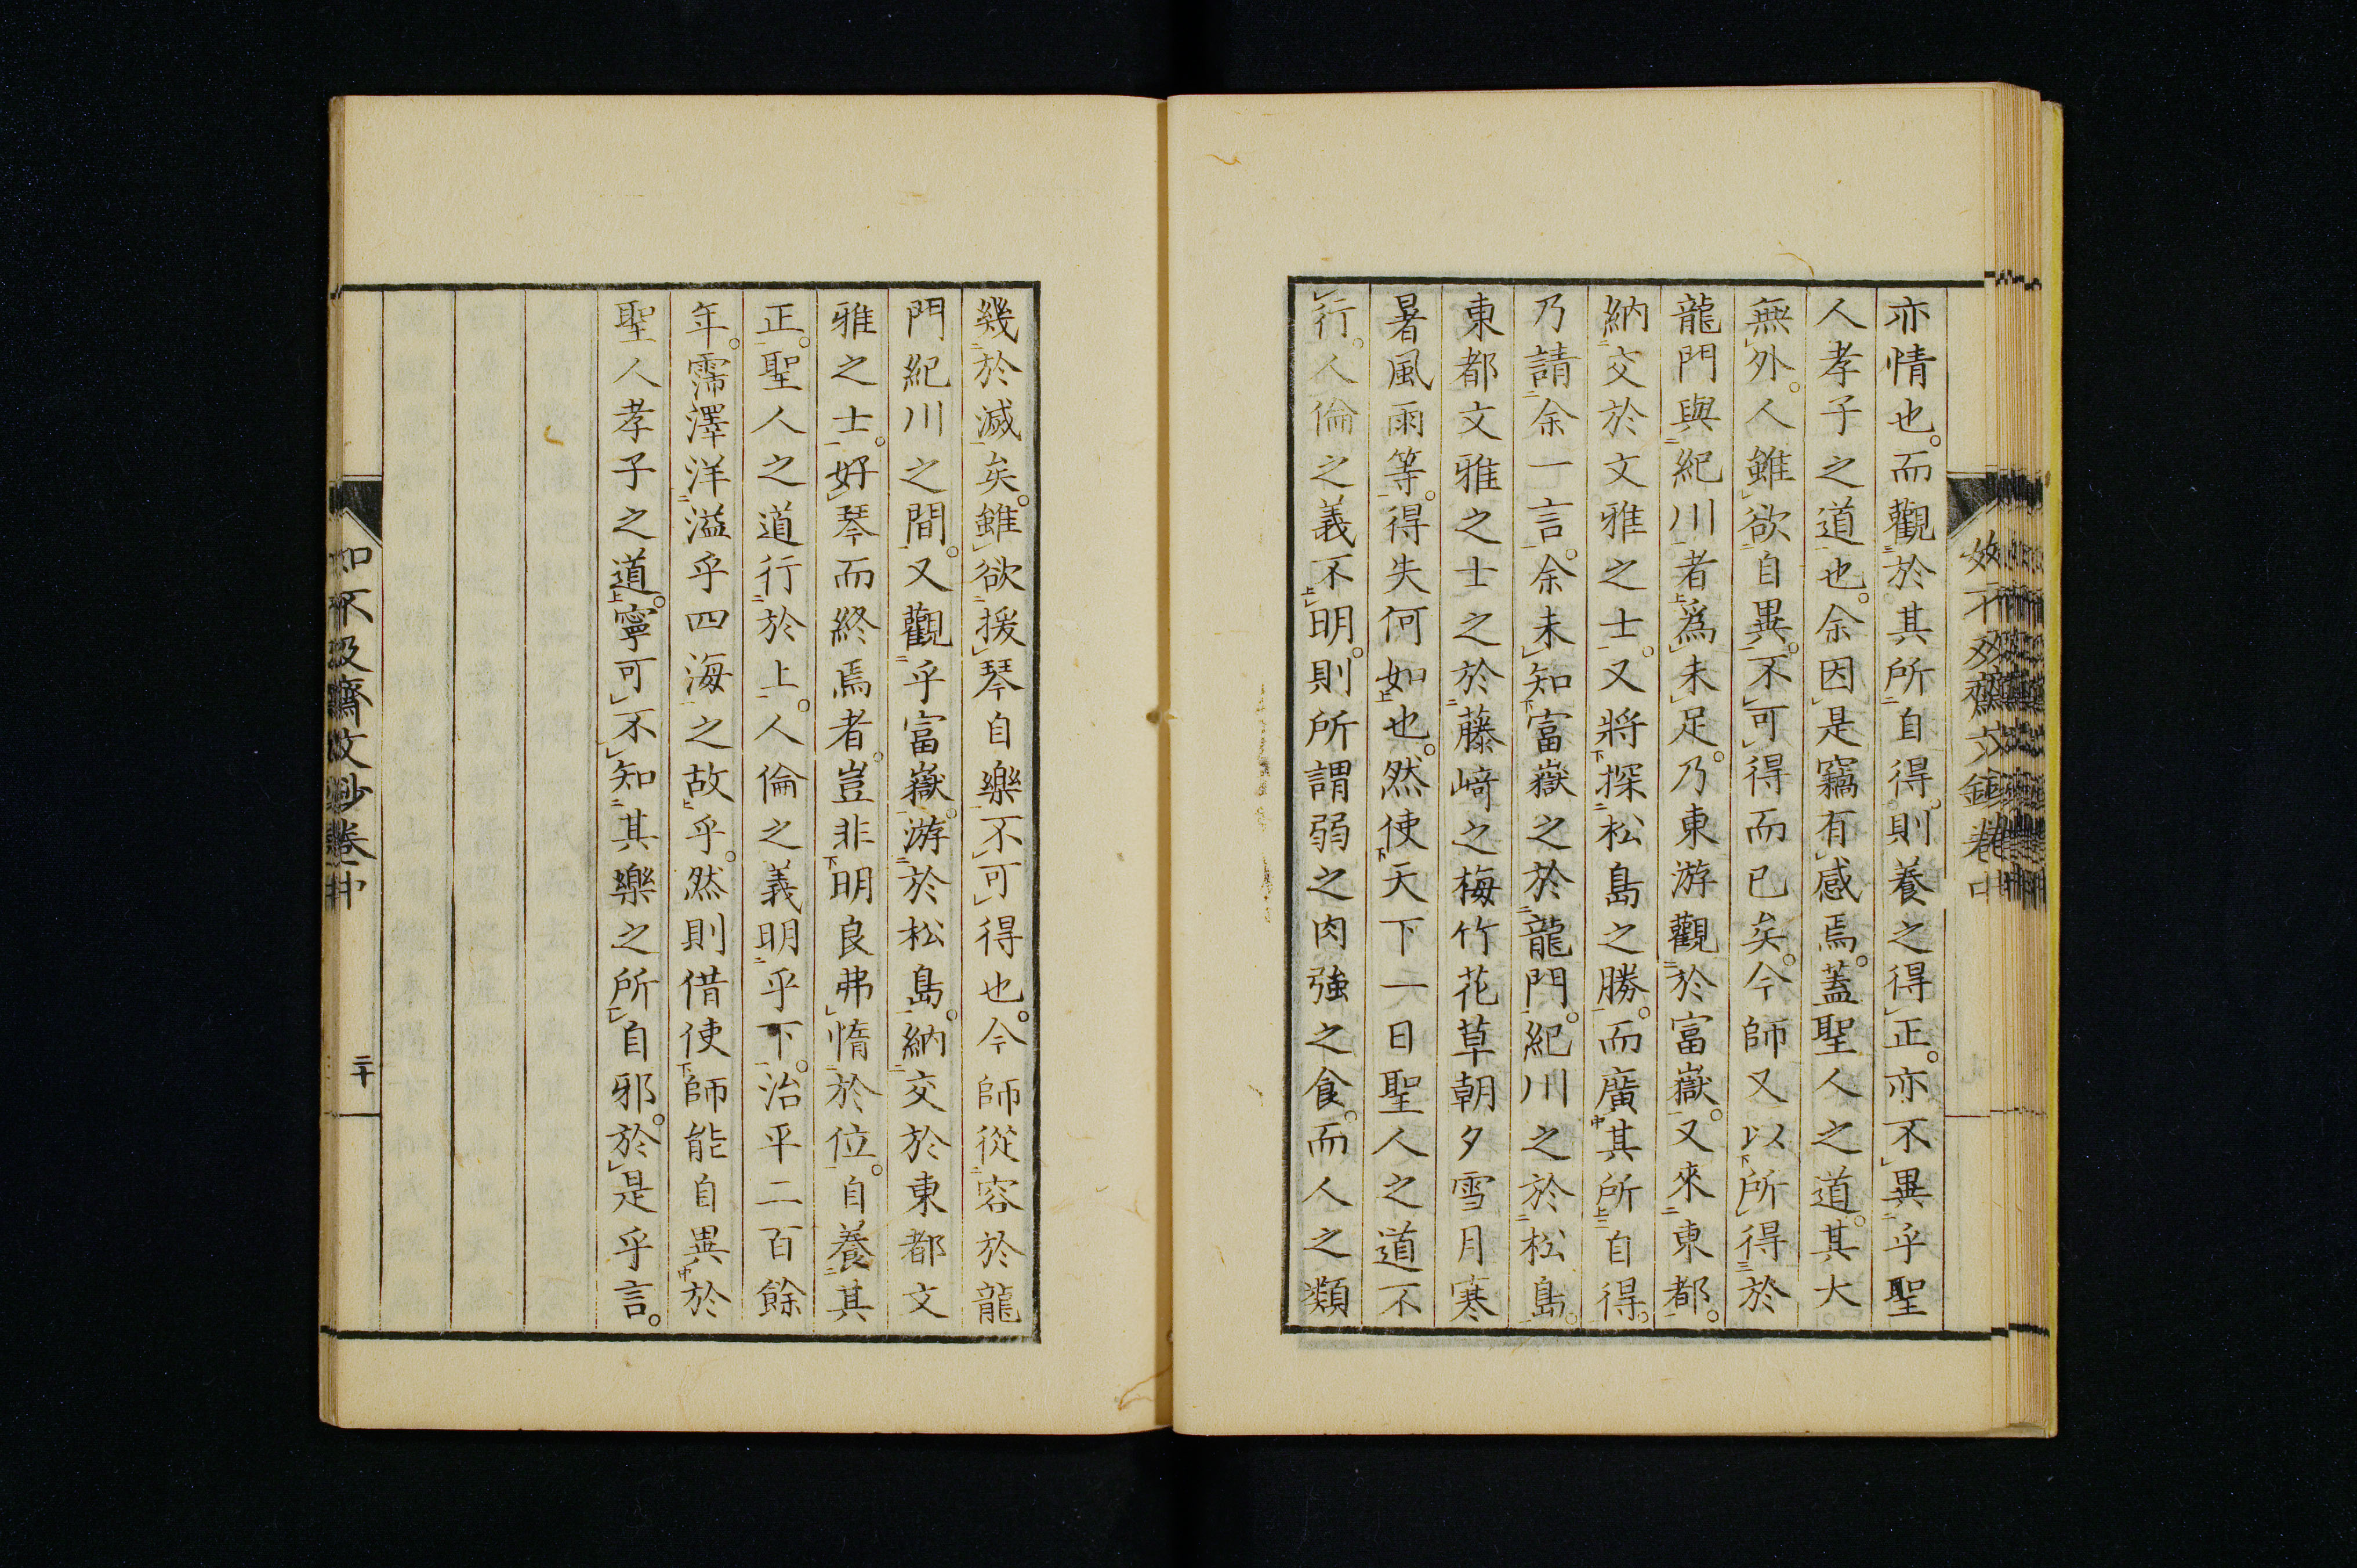 亦情也。而觀於其所自得。則養之得正。亦不異乎聖
人孝子之道也。余因是竊有感焉。蓋聖人之道。其大
無外。人雖欲自異。不可得而已矣。今師又以所得於
龍門與紀川者爲未足。乃東游觀於富嶽。又來東都。
納交於文雅之士。又將探松島之勝。而廣其所自得。
乃請余一言。余未知富嶽之於龍門。紀川之於松島。
東都文雅之士之於藤﨑之梅竹花草朝夕雪月寒
暑風雨等。得失何如也。然使天下一日聖人之道不
行。人倫之義不明。則所謂弱之肉強之食。而人之類
幾於滅矣。雖欲援琴自樂。不可得也。今師從容於龍
門紀川之間。又觀乎富嶽。游於松島。納交於東都文
雅之士。好琴而終焉者。豈非明良弗惰於位。自養其
正。聖人之道行於上。人倫之義明乎下。治平二百餘
年。霈澤洋溢乎四海之故乎。然則借使師能自異於
聖人孝子之道。寧可不知其樂之所自邪。於是乎言。
如不及齋文鈔卷中
二十